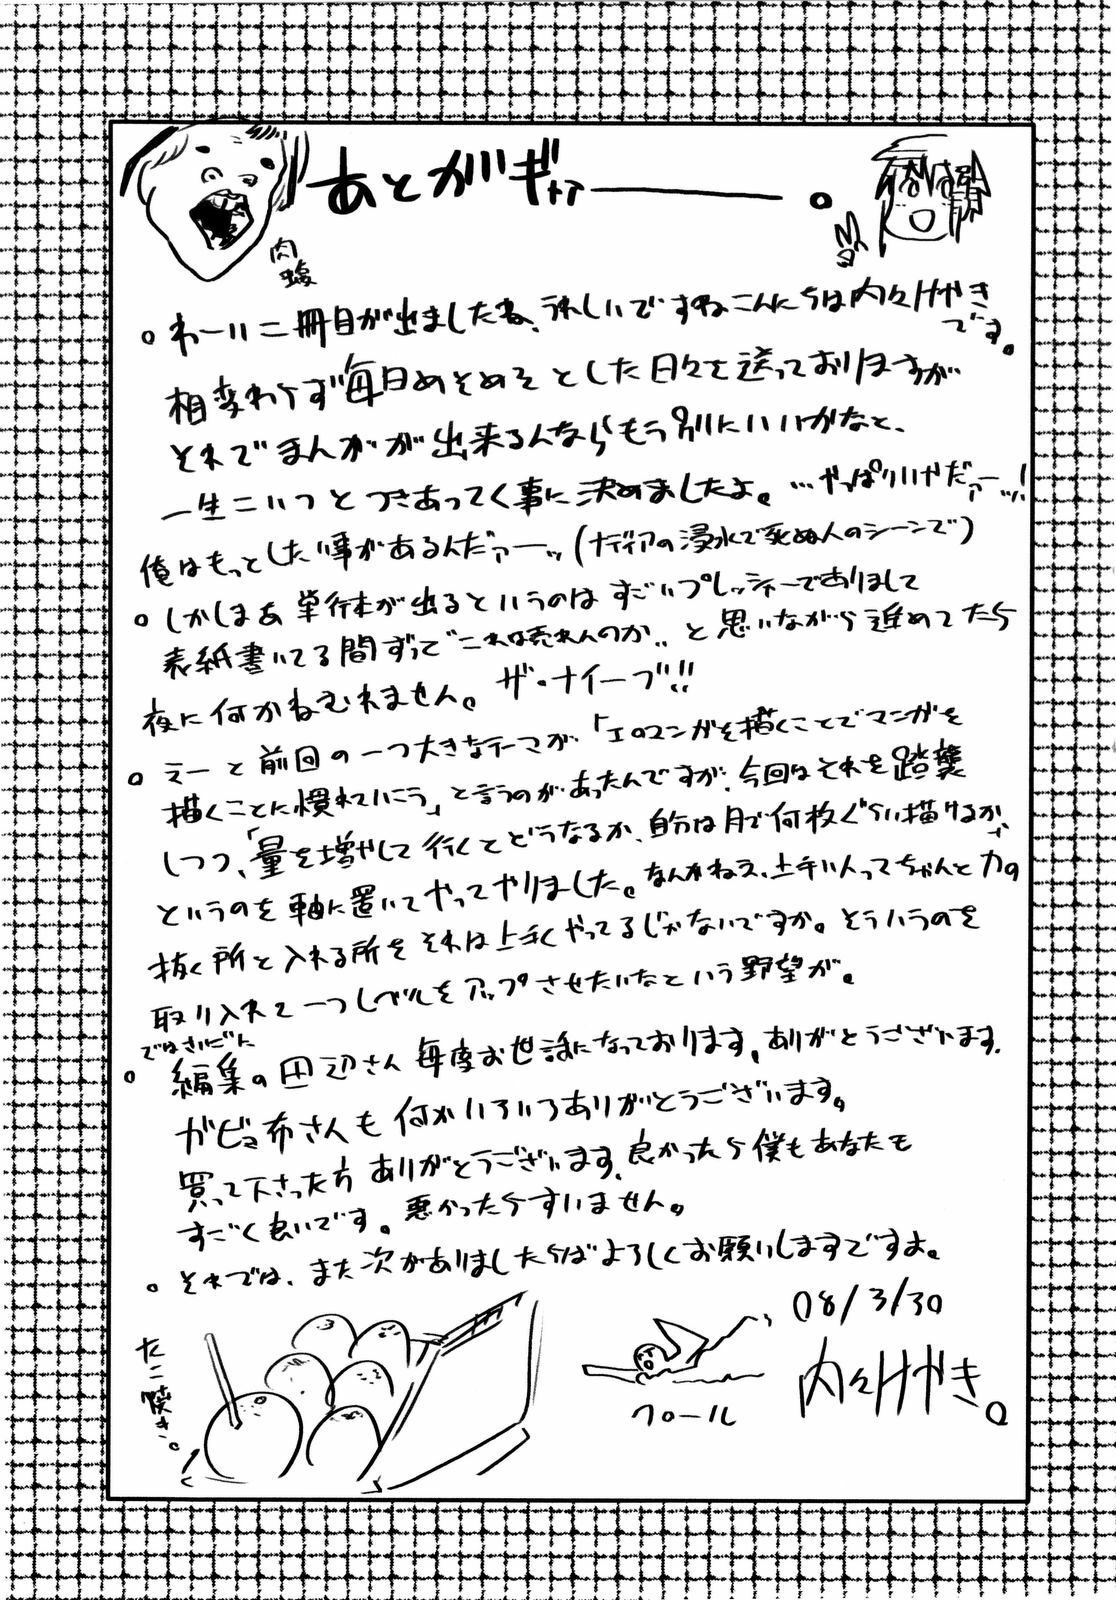 あとがギャァ――――。
肉
。わーい二冊目が出ましたね、うれしいですねこんにちは内々けやき
です。
相変わらず毎日めそめそとした日々を送っておりますが
それでまんがが出来るんならもう別にいいかなと、
一生こいつとつきあってく事に決めましたよ。…やっぱりいやだァーッ!
俺はもっとしたい事があるんだァーッ(ナディアの浸水で死ぬ人のシーンで)
。しかしまあ単行本が出るというのはすごいプレッシャーでありまして
表紙書いてる間ずって"これは売れんのか"と思いながら進めてたら
夜に何かねむれません。ザ・ナイーブ!!
。えーと前回の一つ大きなテーマが「エロマンガを描くことでマンガを
描くことに慣れていこう」と言うのがあったんですが、今回はそれを踏襲
しつつ、「量を増やして行くとどうなるか、自分は月で何枚ぐらい描けるか」
というのを軸に置いてやってやりました。なんかねえ、上手い人ってちゃんと力の
抜く所と入れる所をそれは上手くやってるじゃないですか。そういうのを
取り入れて一つレベルをアップさせたいなという野望が。
ではさいごに
。編集の田辺さん毎度お世話になっております。ありがとうございます。
ガビョ布さんも何かいろいろありがとうございます。
買って下さった方ありがとうございます、良かったら僕もあなたも
すごく良いです。悪かったらすいません。
。それでは、また次がありましたらばよろしくお願いしますですよ。
08/3/30
内々けやき。
たこ焼き。
クロール